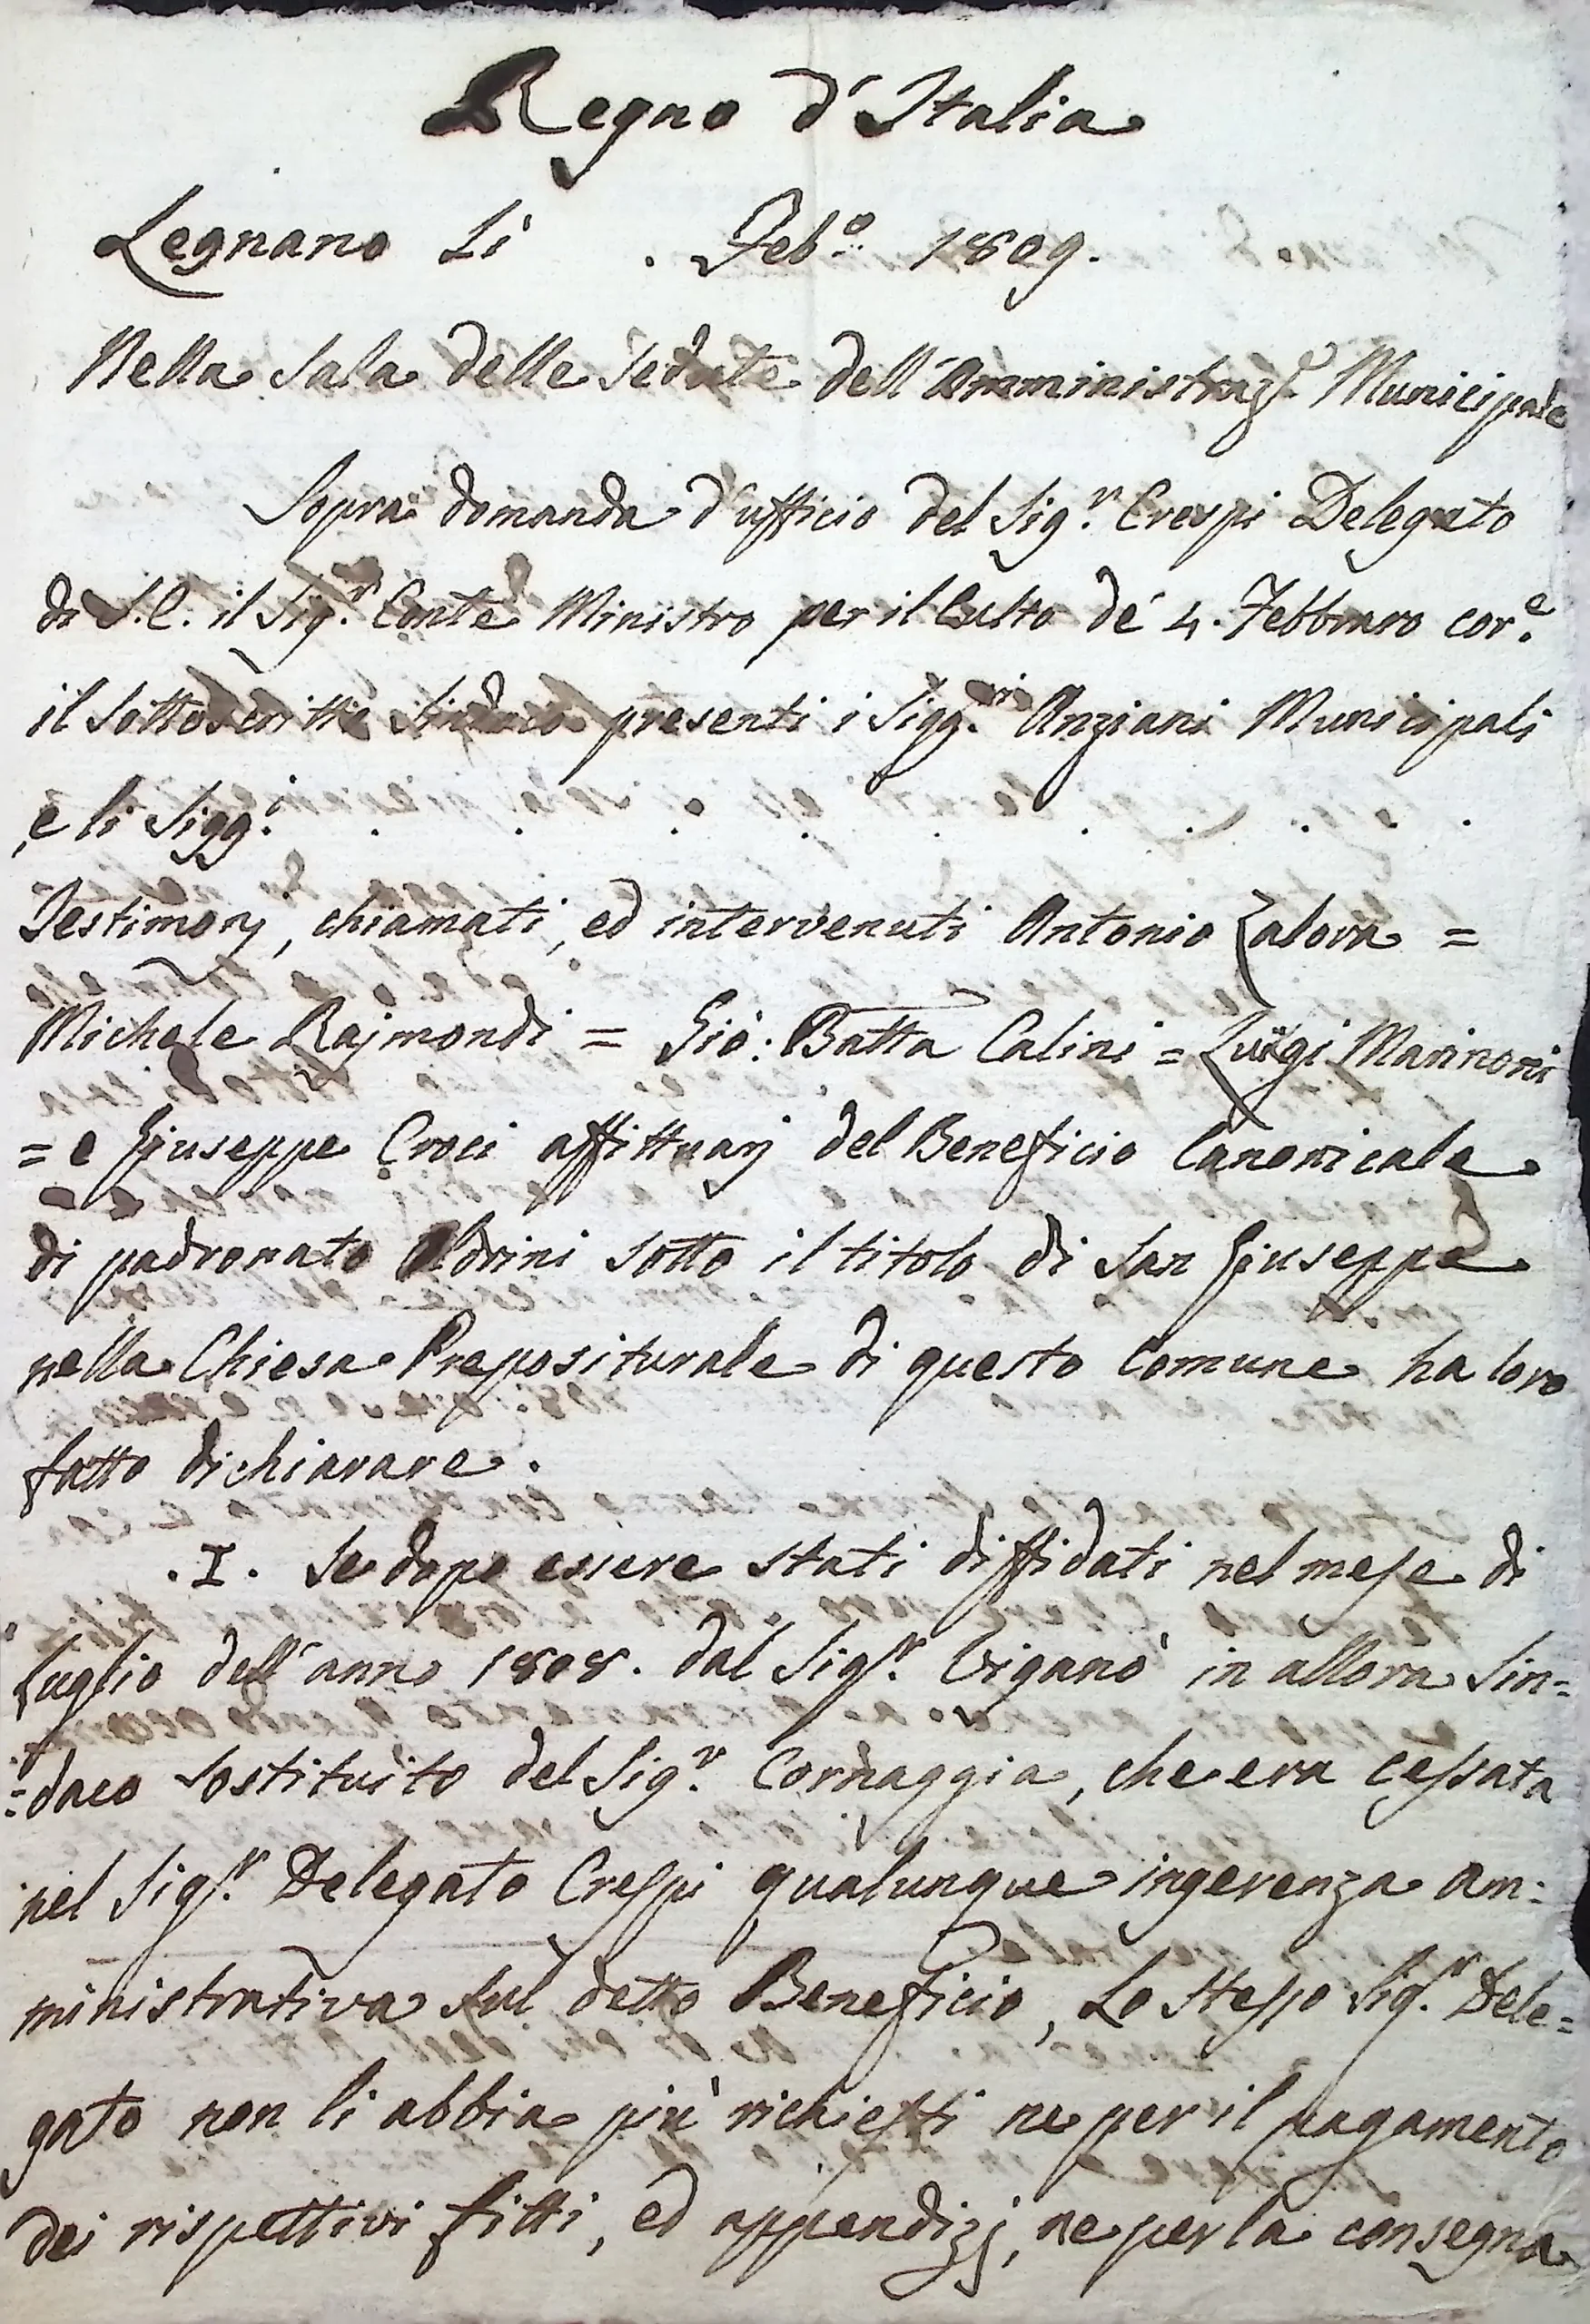 Regno d'Italia
Legnano Li . Feb.o 1809.
Nella Sala delle Sedute dell'Amministraz.e Municipale
Sopra domanda d'ufficio del Sig.r Crespi Delegato
di S.E. il Sig.r Conte Ministro per il Culto de' 4. Febbraro cor.e
il Sottoscritto Sindaco presenti i Sigg.ri Anziani Municipali
e li Sigg.i . . . . . . . . . .
Testimonj, chiamati, ed intervenuti Antonio Zalora =
Michele Rajmondi = Gio: Batta Calini = Luigi Marinoni
= e Giuseppe Croci affittuarj del Beneficio Canonicale
di padronato Oldrini sotto il titolo di San Giuseppe
nella Chiesa Prepositurale di questo Comune ha loro
fatto dichiarare.
.I. Se dopo essere stati diffidati nel mese di
Luglio dell'anno 1808. dal Sig.r Viganò in allora Sin=
=daco sostituito del Sig.r Cornaggia, che era cessata
nel Sig.r Delegato Crespi qualunque ingerenza am=
ministrativa sul detto Beneficio, Lo stesso Sig.r Dele=
gato non li abbia più richiesti ne per il pagamento
dei rispettivi fitti, ed appendizj, ne per la consegna